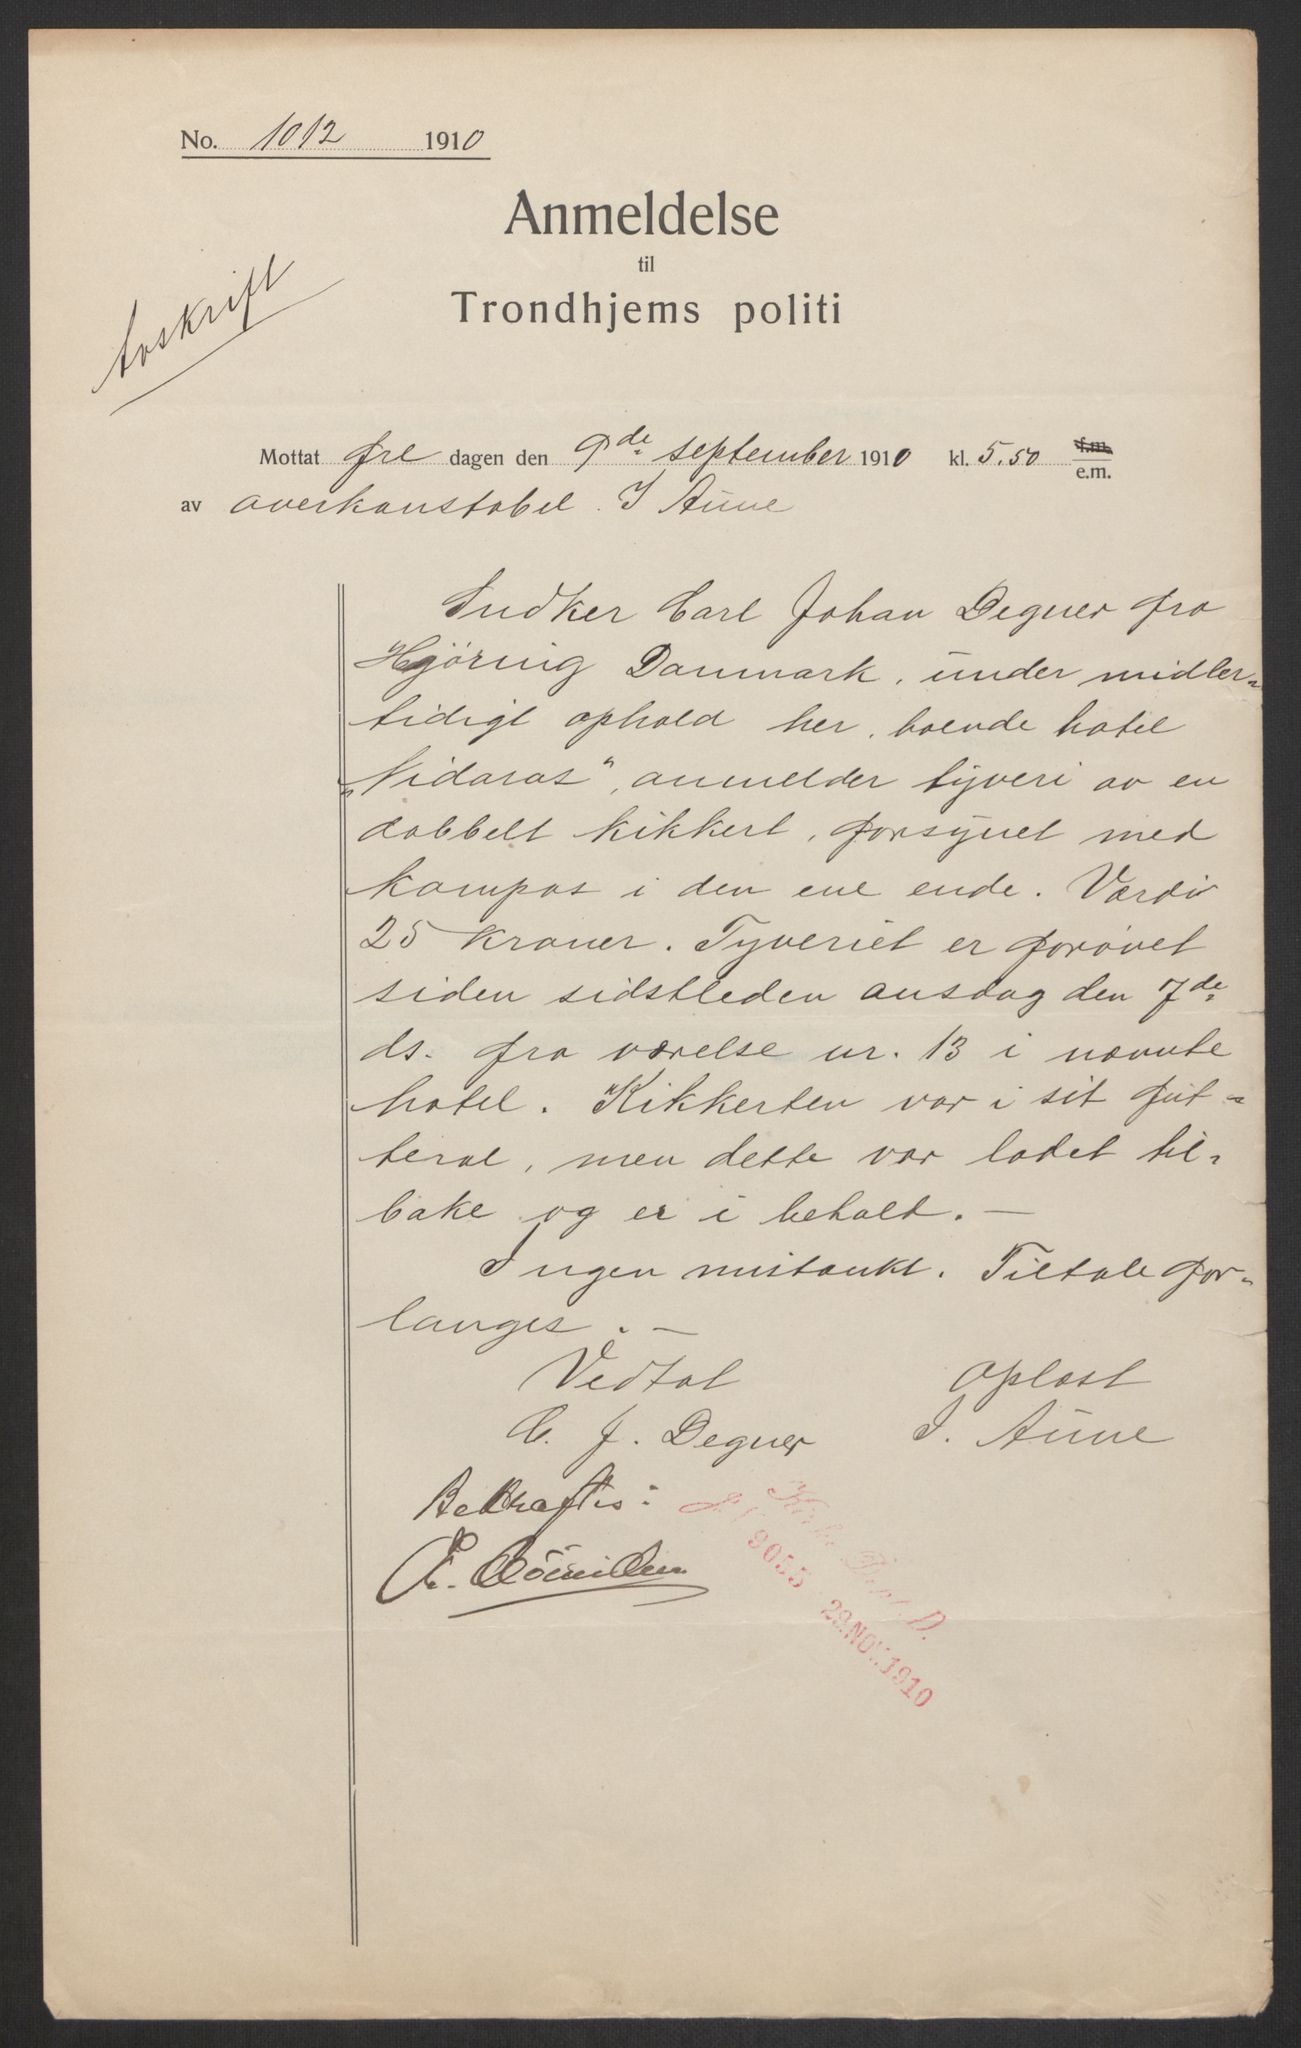 No. 1012 1910
Anmeldelse
til
Trondhjems politi
Avskrift
Mottat fre dagen den 9de september 1910 kl. 5.50 f.m. e.m.
av overkonstabel I Aune
Sndker Carl Johan Degner fra
Hjöring Danmark, under midler-
tidigt ophold her, boende hotel
"Nidaros", anmelder tyveri av en
dobbelt kikkert, forsynet med
kompas i den ene ende. Værdi
25 kroner. Tyveriet er forövet
siden sidstleden onsdag den 7de
ds. fra værelse nr. 13 i nævnte
hotel. Kikkerten var i sit fut-
teral, men dette var ladet til-
bake og er i behold. -
Ingen mistænkt. Tiltale for-
langes. -
Vedtat oplæst
C. J. Degner I. Aune
Bekræftes:
Kirke Dept. D.
9055 29. NOV. 1910